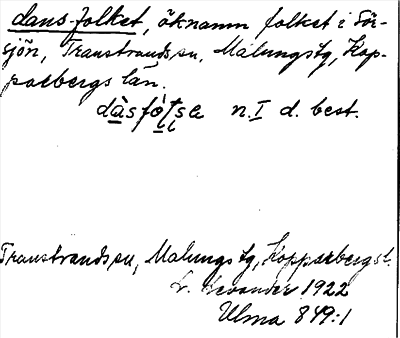 dans-folket, öknamn folket i Sör-
sjön, Transtrands sn, Malungs tg, Kop-
parbergs län.
n. I d. best.
Transtrands sn, Malungs tg, Kopparbergs l.
Levander 1922
Ulma 849:1